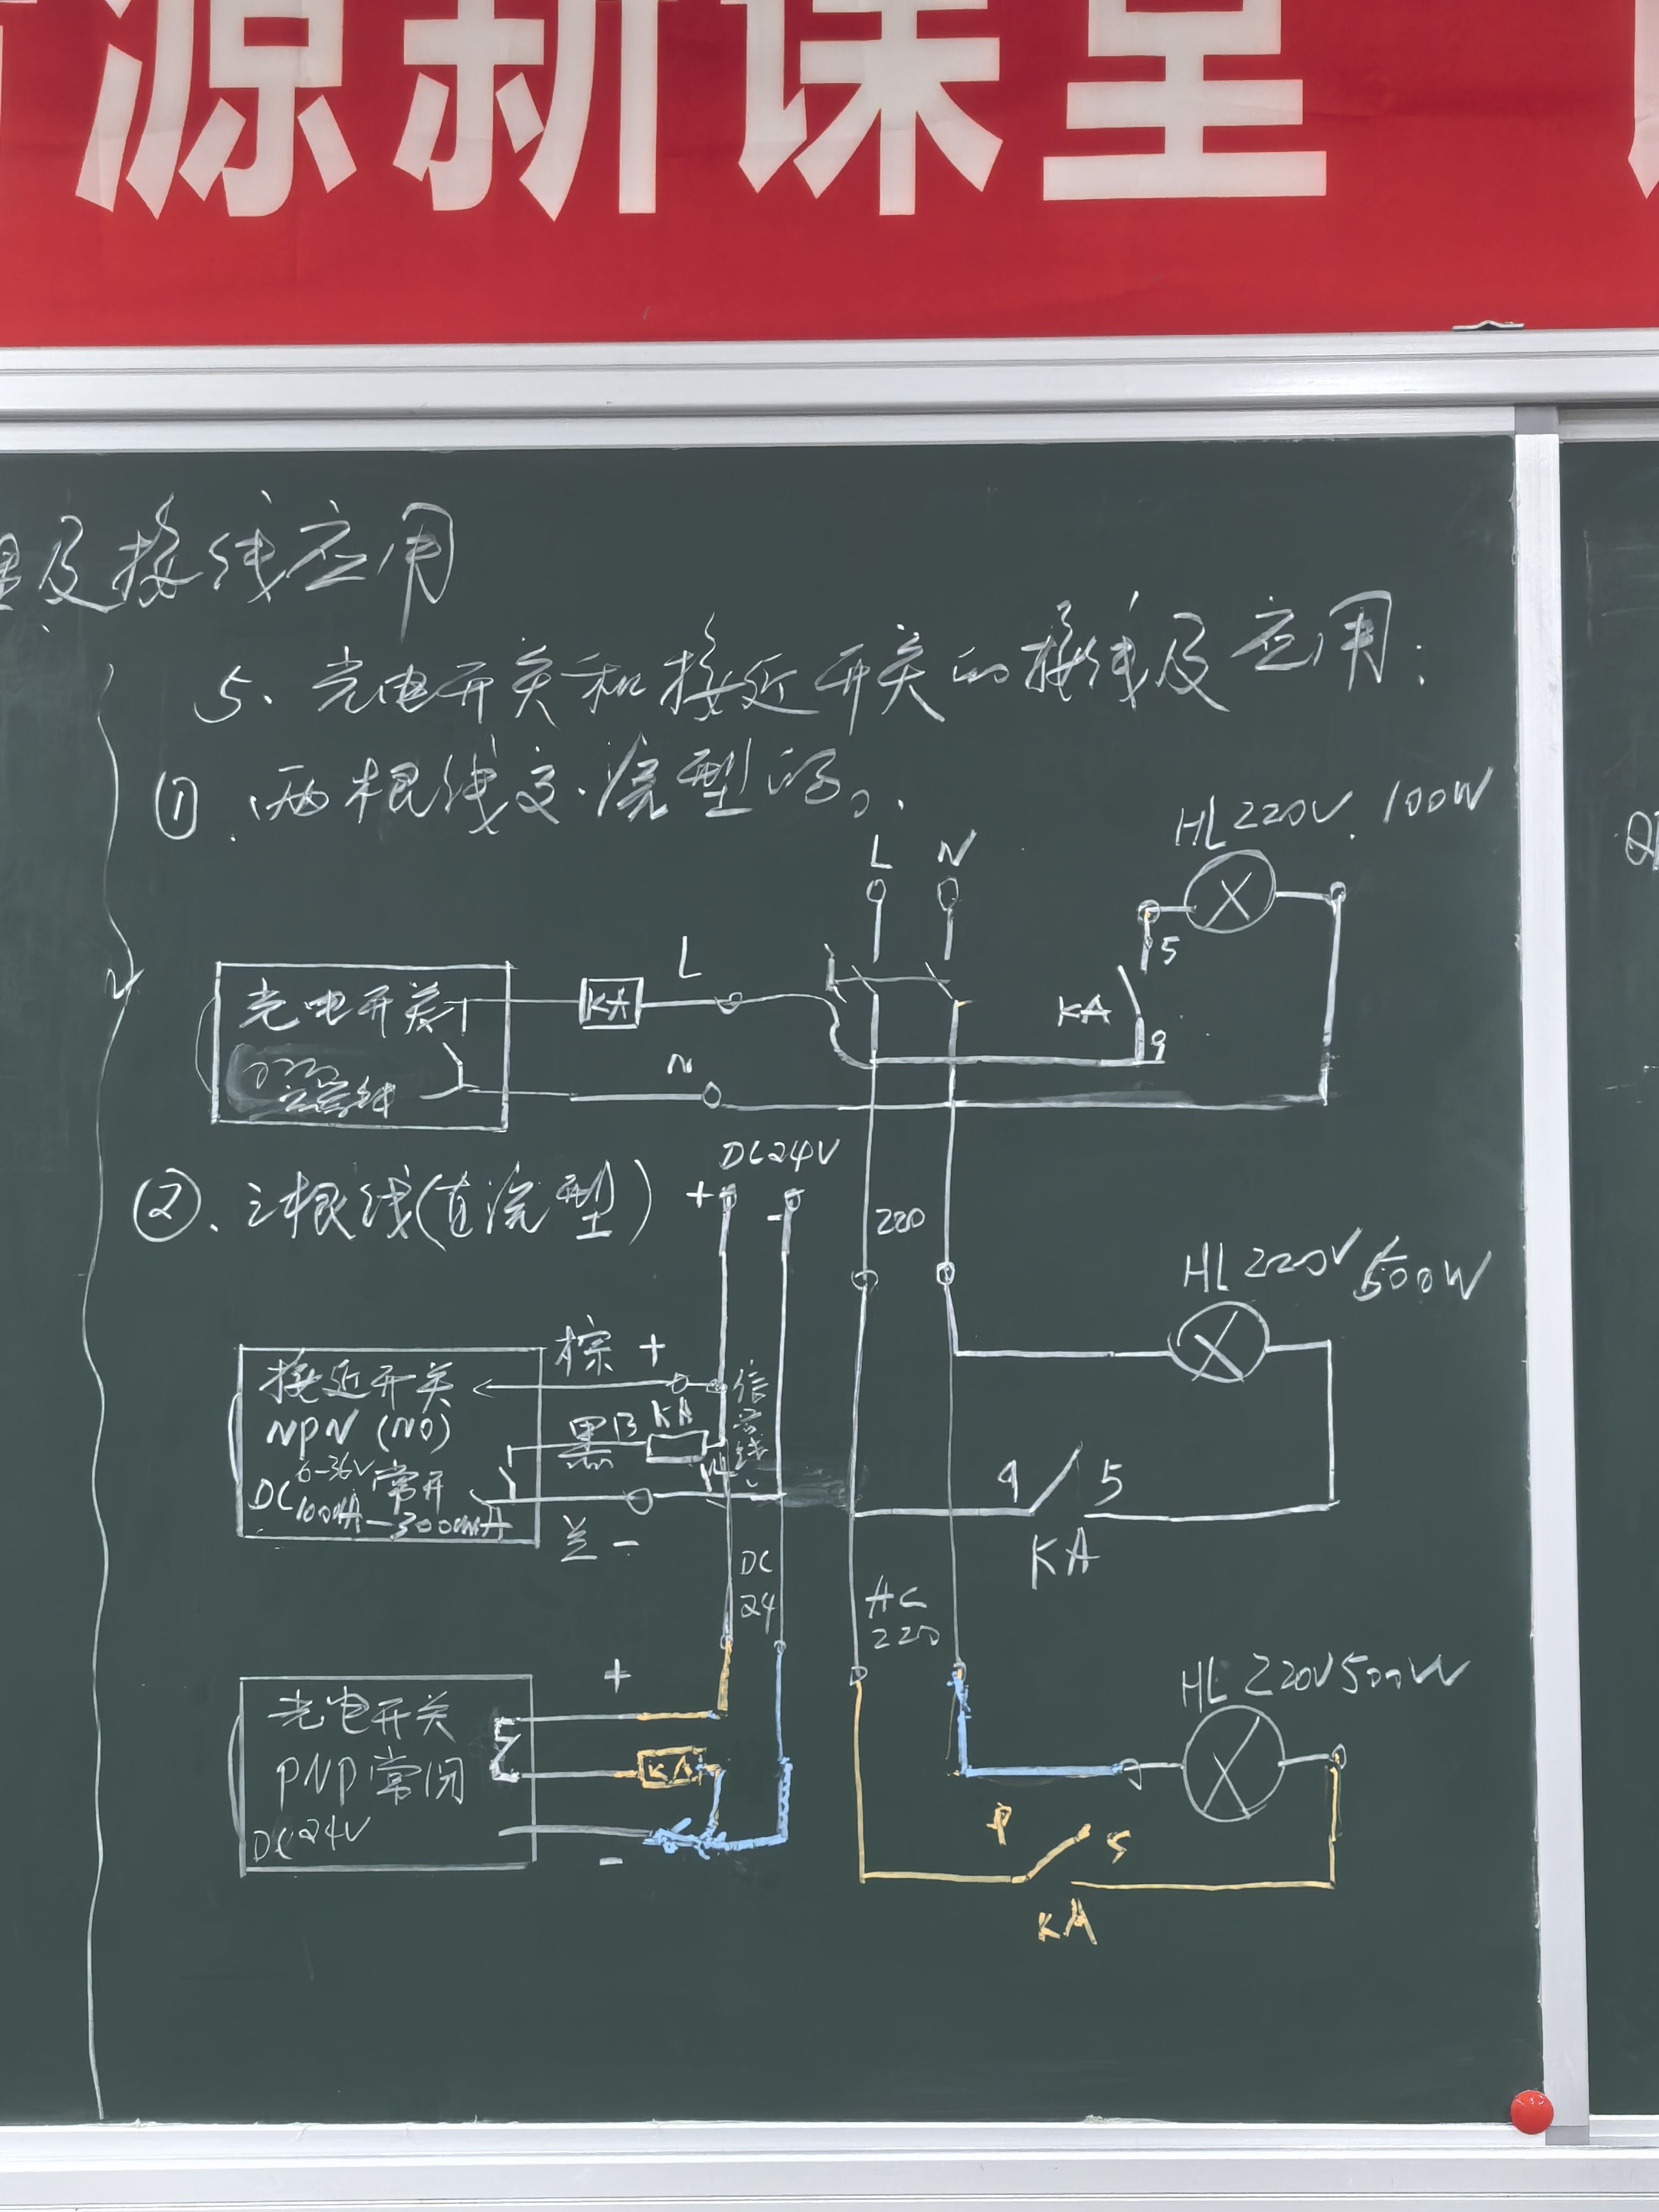 源新课堂
及接线应用
5、光电开关和接近开关的接线及应用:
① 两根线交流型的。
HL 220V 100W
L N
5
L
光电开关
KA
KA
9
N
DC24V
②、三根线(直流型)
+ -
220
HL 220V 500W
棕 +
接近开关
信号线
NPN (NO)
黑 13 KA
14
6-36V
DC 常开
100mA-300mA
9 5
兰 -
KA
DC
24
AC
220
+
HL 220V 500W
光电开关
PNP 常闭
KA
DC 24V
9 5
-
KA